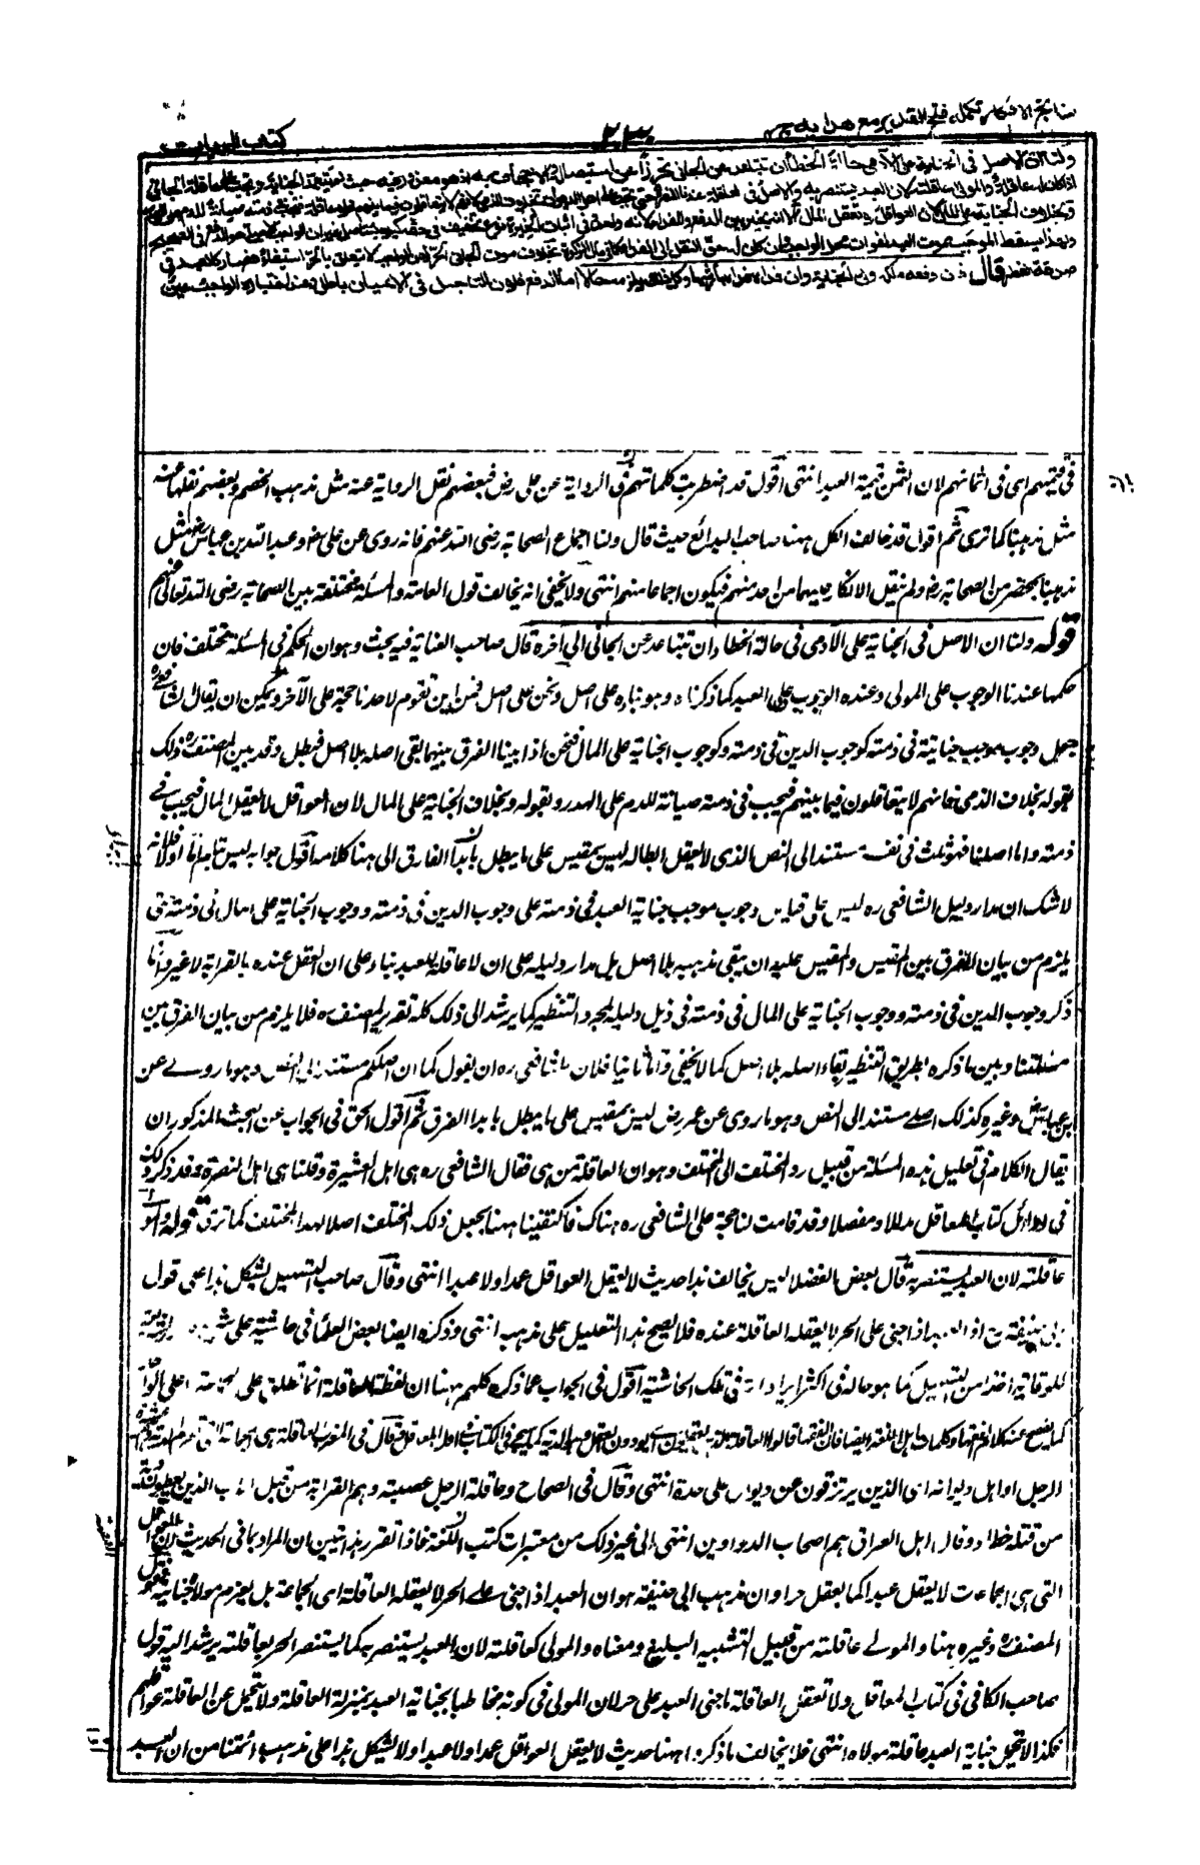 نتائج الافكار تكمله فتح القدير مع هدايه ج
كتاب الديات
ولنا ان الاصل في الجناية على الآدمي حالة الخطأ ان تتباعد عن الجاني تحرزا عن استيصاله والاجحاف به اذ هو معذور فيه حيث لم يتعمد الجناية وتجب على عاقلة الجاني
اذا كان له عاقلة والمولى عاقلته لان العبد يستنصر به والاصل في العاقلة عندنا النصرة حتى تجب على اهل الديوان بخلاف الذمي لانهم لا يتعاقلون فيما بينهم فلا عاقلة فتجب في ذمته صيانة للدم عن الهدر
وبخلاف الجناية على المال لان العواقل لا تعقل المال الا انه يخير بين الدفع والفداء لانه واحد وفي اثبات الخيرة نوع تخفيف في حقه كيلا يستأصل غير ان الواجب الاصلي هو الدفع في الصحيح
ولهذا يسقط الموجب بموت العبد لفوات محل الواجب وان كان له حق النقل الى الفداء كما في مال الزكوة بخلاف موت الجاني الحر لان الواجب لا يتعلق بالحر استيفاء فصار كالعبد في
صدقة الفطر قال فان دفعه ملكه ولي الجناية وان فداه فداه بارشها وكل ذلك يلزم حالا اما الدفع فلان التاجيل في الاعيان باطل وعند اختياره الواجب عين
في قيمتهم اى في اثمانهم لان الثمن قيمة العبد انتهى اقول قد اضطربت كلماتهم في الرواية عن على رض فبعضهم نقل الرواية عنه مثل مذهب الخصم وبعضهم نقلها عنه
مثل مذهبنا كما ترى ثم اقول قد خالف الكل ههنا صاحب البدائع حيث قال ولنا اجماع الصحابة رضى الله عنهم فانه روى عن على رض وعبد الله بن عباس رض مثل
مذهبنا بمحضر من الصحابة رض ولم ينقل الانكار عليهما من احد منهم فيكون اجماعا منهم انتهى ولا يخفى انه يخالف قول العامة والمسئلة مختلفة بين الصحابة رضى الله تعالى عنهم
قوله ولنا ان الاصل في الجناية على الآدمى في حالة الخطاء ان تتباعد عن الجانى الى آخره قال صاحب العناية فيه بحث وهو ان الحكم في المسئلة مختلف فان
حكمها عندنا الوجوب على المولى وعنده الوجوب على العبد كما ذكرناه وهو بناه على اصل ونحن على اصل فمن اين تقوم لاحدنا حجة على الآخر ويمكن ان يقال الشافعى ره
جعل وجوب موجب جنايته في ذمته كوجوب الدين في ذمته وكوجوب الجناية على المال فنحن اذا بينا الفرق بينهما بقى اصله بلا اصل فبطل وقد بين المصنف ره ذلك
بقوله بخلاف الذمى فانهم لا يتعاقلون فيما بينهم فيجب في ذمته صيانة للدم على الهدر وبقوله وبخلاف الجناية على المال لان العواقل لا تعقل المال فيجب في
ذمته واما اصلنا فهو ثابت في نفسه مستند الى النص الذى لا يعقل ابطاله ليس بمقيس على ما يبطل بابداء الفارق الى هنا كلامه اقول جوابه ليس بتام اما اولا فلانه
لا شك ان مدار دليل الشافعى ره ليس على قياس وجوب موجب جناية العبد في ذمته على وجوب الدين في ذمته ووجوب الجناية على المال في ذمته حتى
يلزم من بيان الفرق بين المقيس والمقيس عليه ان يبقى مذهبه بلا اصل بل مدار دليله على ان لا عاقلة للعبد بناء على ان العقل عنده بالقرابة لا غير وانما
ذكر وجوب الدين في ذمته ووجوب الجناية على المال في ذمته في ذيل دليله لمجرد التنظير كما يرشد الى ذلك كله تقرير المصنف ره فلا يلزم من بيان الفرق بين
مسئلتنا وبين ما ذكره بطريق التنظير بقاء اصله بلا اصل كما لا يخفى واما ثانيا فلان للشافعى ره ان يقول كما ان اصلكم مستند الى النص وهو ما روى عن
ابن عباس رض وغيره كذلك اصلى مستند الى النص وهو ما روى عن عمر رض ليس بمقيس على ما يبطل بابداء الفرق ثم اقول الحق في الجواب عن البحث المذكور ان
يقال الكلام في تعليل هذه المسئلة من قبيل رد المختلف الى المختلف وهو ان العاقلة من هى فقال الشافعى ره هى اهل العشيرة وقلنا هى اهل النصرة وقد ذكر ذلك
في اوائل كتاب المعاقل مدللا ومفصلا وقد قامت لنا حجة على الشافعى ره هناك فاكتفينا ههنا بجعل ذلك المختلف اصلا لهذا المختلف كما ترى قوله والمولى
عاقلته لان العبد يستنصر به قال بعض الفضلاء اليس يخالف هذا حديث لا تعقل العواقل عمدا ولا عبدا انتهى وقال صاحب التسهيل يشكل هذا على قول
ابى حنيفة رح اذ العبد اذا جنى على الحر لا يعقله العاقلة عنده فلا يصح هذا التعليل على مذهبه انتهى وذكره ايضا بعض العلماء في حاشيته على شرح
للوقاية اخذا من التسهيل كما هو حاله في اكثر ايراداته في تلك الحاشية اقول في الجواب عما ذكره كلهم ههنا ان لفظة العاقلة انما تطلق على الجماعة
الرجل او اهل ديوانه اى الذين يرتزقون من ديوان على حدة انتهى وقال في الصحاح وعاقلة الرجل عصبته وهم القرابة من قبل الاب الذين يعطون دية
من قتله خطاء وقال اهل العراق هم اصحاب الدواوين انتهى الى غير ذلك من معتبرات كتب اللغة فاذا تقرر هذا تبين ان المراد بما في الحديث ان العواقل
التى هى الجماعات لا يعقل عبدا كما يعقل حرا وان مذهب ابى حنيفة هو ان العبد اذا جنى على الحر لا يعقله العاقلة اى الجماعة بل يغرم مولاه جنايته فقول
المصنف ره وغيره هنا والمولى عاقلته من قبيل التشبيه البليغ ومعناه والمولى كعاقلته لان العبد يستنصر به كما يستنصر الحر بعاقلته يرشد اليه قول
صاحب الكافى في كتاب المعاقل ولا تعقل العاقلة ما جنى العبد على حر لان المولى في كونه مخاطبا بجناية العبد بمنزلة العاقلة ولا تتحمل عن العاقلة عواقلهم
فكذا لا تتحمل جناية العبد عاقلة مولاه انتهى فلا يخالف ما ذكروا ههنا حديث لا يعقل العواقل عمدا ولا عبدا ولا يشكل هذا على مذهب ائمتنا من ان العبد